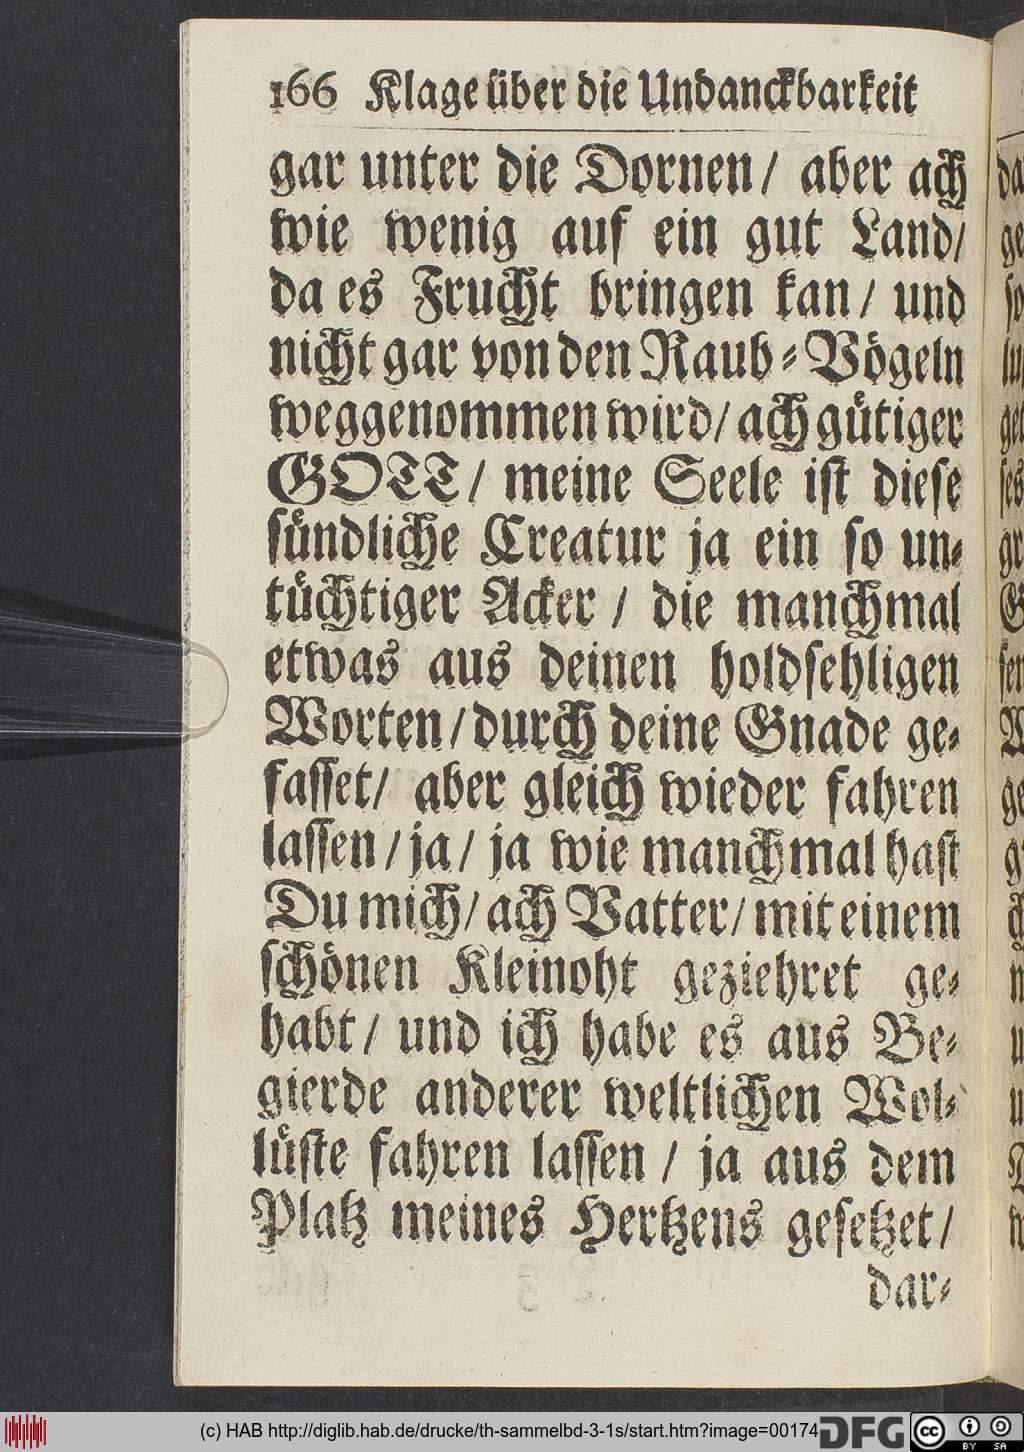 166 Klage über die Undanckbarkeit
gar unter die Dornen / aber ach
wie wenig auf ein gut Land/
da es Frucht bringen kan / und
nicht gar von den Raub-Vögeln
weggenommen wird/ ach gütiger
GOTT/ meine Seele ist diese
sündliche Creatur ja ein so un-
tüchtiger Acker / die manchmal
etwas aus deinen holdsehligen
Worten / durch deine Gnade ge-
fasset/ aber gleich wieder fahren
lassen / ja / ja wie manchmal hast
Du mich/ ach Vatter/ mit einem
schönen Kleinoht geziehret ge-
habt / und ich habe es aus Be-
gierde anderer weltlichen Wol-
lüste fahren lassen / ja aus dem
Platz meines Hertzens gesetzet /
dar-
(c) HAB http://diglib.hab.de/drucke/th-sammelbd-3-1s/start.htm?image=00174
DFG
cc
BY SA